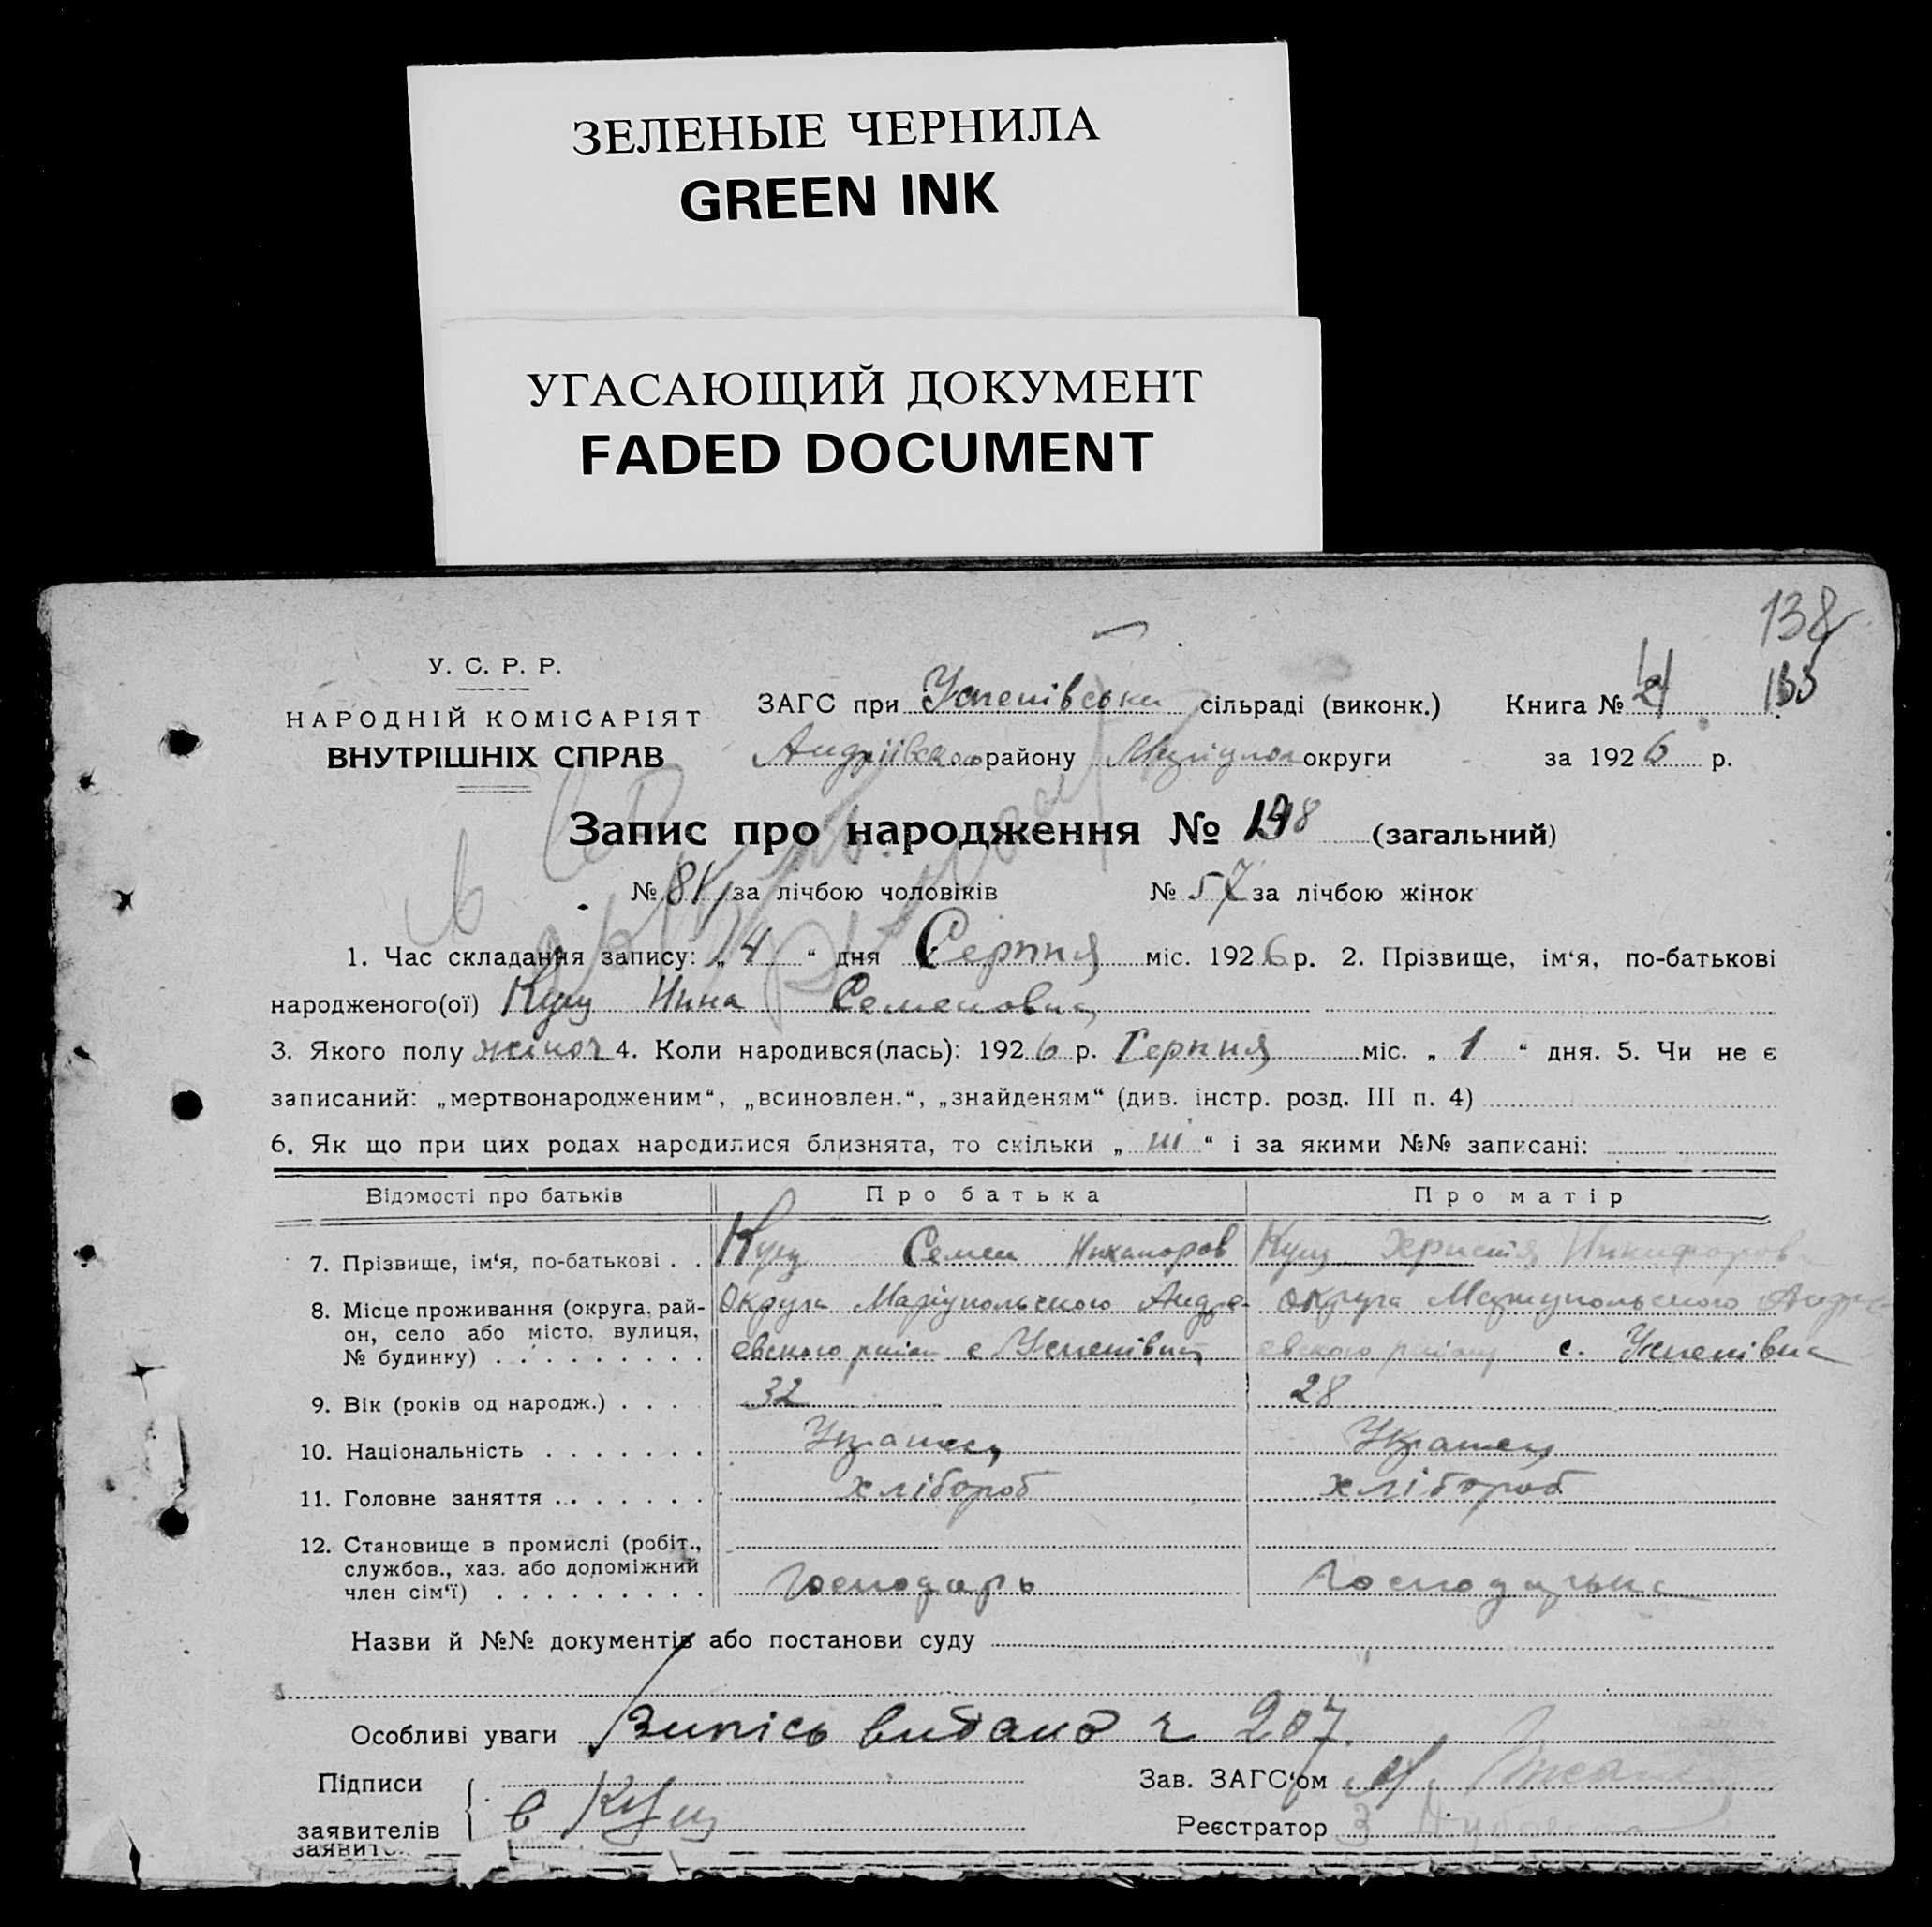 ЗЕЛЕНЫЕ ЧЕРНИЛА
GREEN INK
УГАСАЮЩИЙ ДОКУМЕНТ
FADED DOCUMENT
138
У. С. Р. Р.
НАРОДНІЙ КОМІСАРІЯТ
ВНУТРІШНІХ СПРАВ
ЗАГС при Успенівськи сільраді (виконк.) Книга №
Андріївсько району Маріупол округи за 1926 р.
Запис про народження № (загальний)
№ 81 за лічбою чоловіків № 57 за лічбою жінок
1. Час складання запису: „4“ дня Серпня міс. 1926 р. 2. Прізвище, ім‘я, по-батькові
народженого(ої) Кущ Нина Семеновна
3. Якого полу жіноч 4. Коли народився(лась): 1926 р. Серпня міс. „1“ дня. 5. Чи не є
записаний: „мертвонародженим“, „всиновлен.“, „знайденям“ (див. інстр. розд. III п. 4)
6. Як що при цих родах народилися близнята, то скільки „ “ і за якими №№ записані:
Відомості про батьків Про батька Про матір
7. Прізвище, ім‘я, по-батькові . . Кущ Семен Никаноров Кущ Христя Никифоров
8. Місце проживання (округа, рай- Округа Маріупольского Андре- округа Маріупольского Андре-
он, село або місто, вулиця,
№ будинку) . . . . . . . . . евского район с Успенівка евского району с. Успенівка
9. Вік (років од народж.) . . . . 32 28
10. Національність . . . . . . . Украинец Украинец
11. Головне заняття . . . . . . . хлібороб хлібороб
12. Становище в промислі (робіт.,
службов., хаз. або допоміжний
член сім‘ї) . . . . . . . . . Господарь Господарька
Назви й №№ документів або постанови суду
Особливі уваги Запісь видано 207.
Підписи
заявителів Кущ
Зав. ЗАГС‘ом
Реєстратор